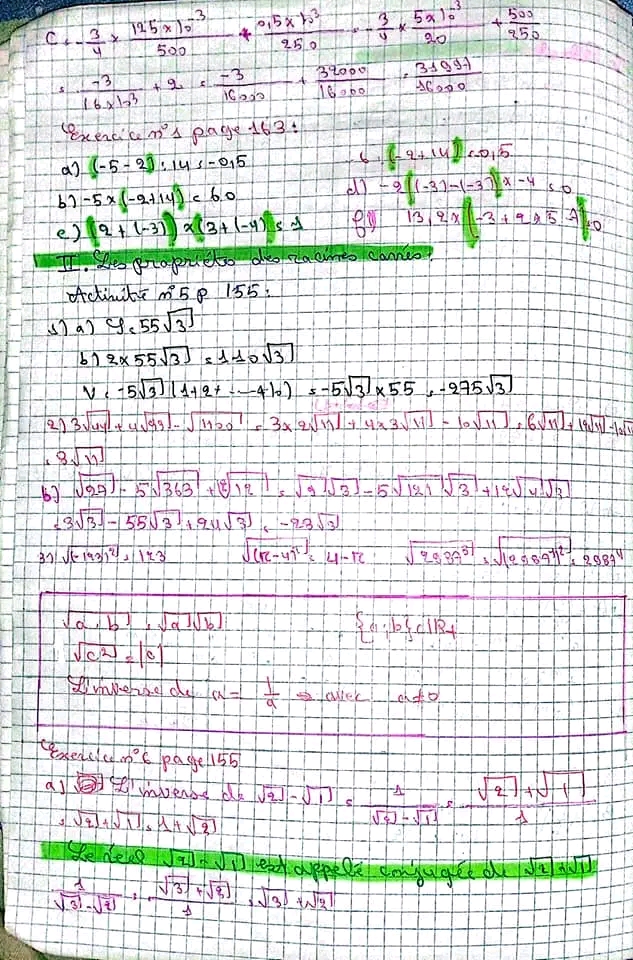 C = -3/4 × 125×10^-3/500 + 0,5×10^3/250 = -3/4 × 5×10^-3/20 + 500/250
= -3/16×10^3 + 2 = -3/16000 + 32000/16000 = 31997/16000
Exercice n°1 page 163:
a) (-5-2):14 = -0,5
(-2+14) = 0,5
b) -5×(-2+14) = 60
d) -2((-3)-(-3))×-4 = 0
e) (2+(-3))×(3+(-4)) = 1
f) 13,2×(-3+2×5-7) = 0
II. Les propriétés des racines carrés:
Activité n°5 p 155:
1) a) S = 55√3
b) 2×55√3 = 110√3
V = -5√3(1+2+...+10) = -5√3×55 = -275√3
2) 3√44+4√99-√1100 = 3×2√11+4×3√11-10√11 = 6√11+12√11-10√11
= 8√11
b) √27-5√363+12√12 = √9√3-5√121√3+12√4√3
= 3√3-55√3+24√3 = -28√3
3) √(-123)² = 123 √(π-4)² = 4-π √2987⁸ = √(2987⁴)² = 2987⁴
√a·b = √a√b {a;b}⊂IR+
√c² = |c|
L'inverse de a = 1/a → avec a≠0
Exercice n°6 page 155
a) L'inverse de √2-√1 = 1/√2-√1 = √2+√1/1
= √2+√1 = 1+√2
Le réel √2-√1 est appelé conjuguée de √2+√1
1/√3-√2 = √3+√2/1 = √3+√2